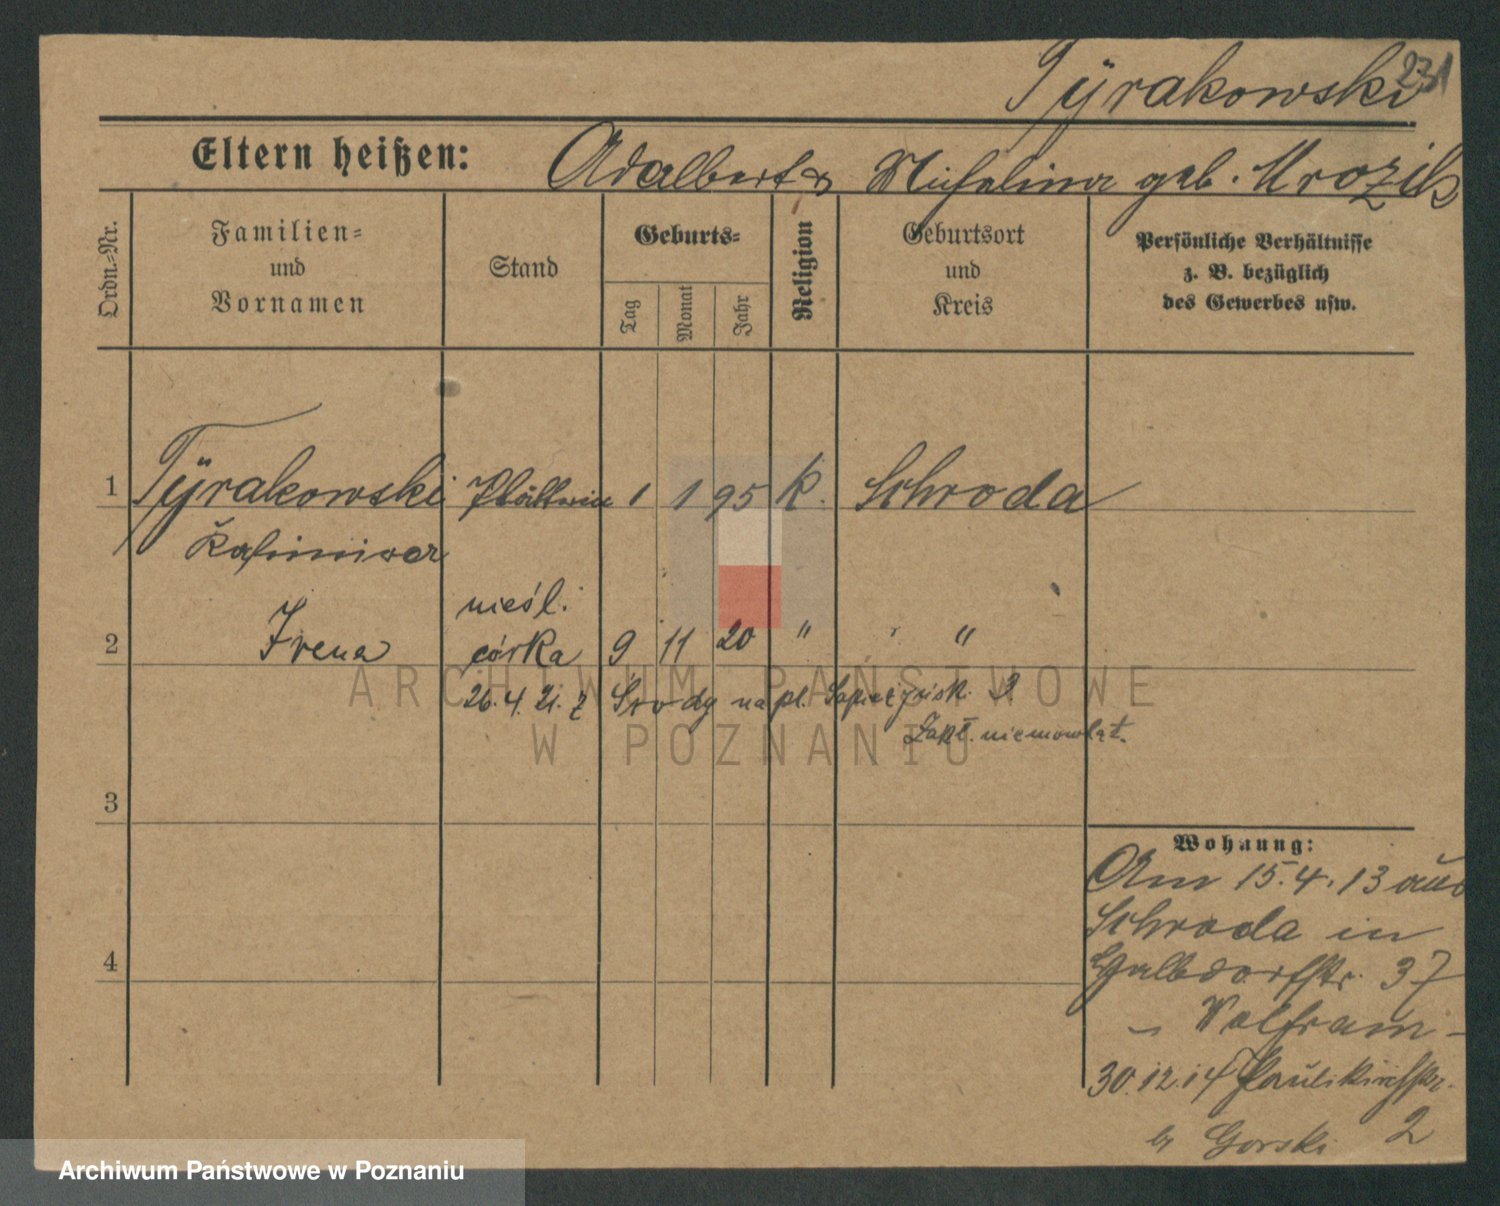 Tÿrakowski 231
Eltern heißen: Adalbert & Michalina geb. Mrozik
Ordn.-Nr.
Familien- und Vornamen
Stand
Geburts-
Tag
Monat
Jahr
Religion
Geburtsort und Kreis
Persönliche Verhältnisse
z. B. bezüglich
des Gewerbes usw.
1 Tÿrakowski Plätterin 1 1 95 K. Schroda
Kasimira
nieśl.
2 Irena córka 9 11 20 " "
26.4.21. z Środy na pl. Sapieżyńsk. 3
Zakł. niemowląt.
3
Wohnung:
Am 15.4.13 aus
Schroda in
37
4
– Wolfram –
30.12.14 Paulikirchstr.
b/ Gorski 2
ARCHIWUM PAŃSTWOWE
W POZNANIU
Archiwum Państwowe w Poznaniu